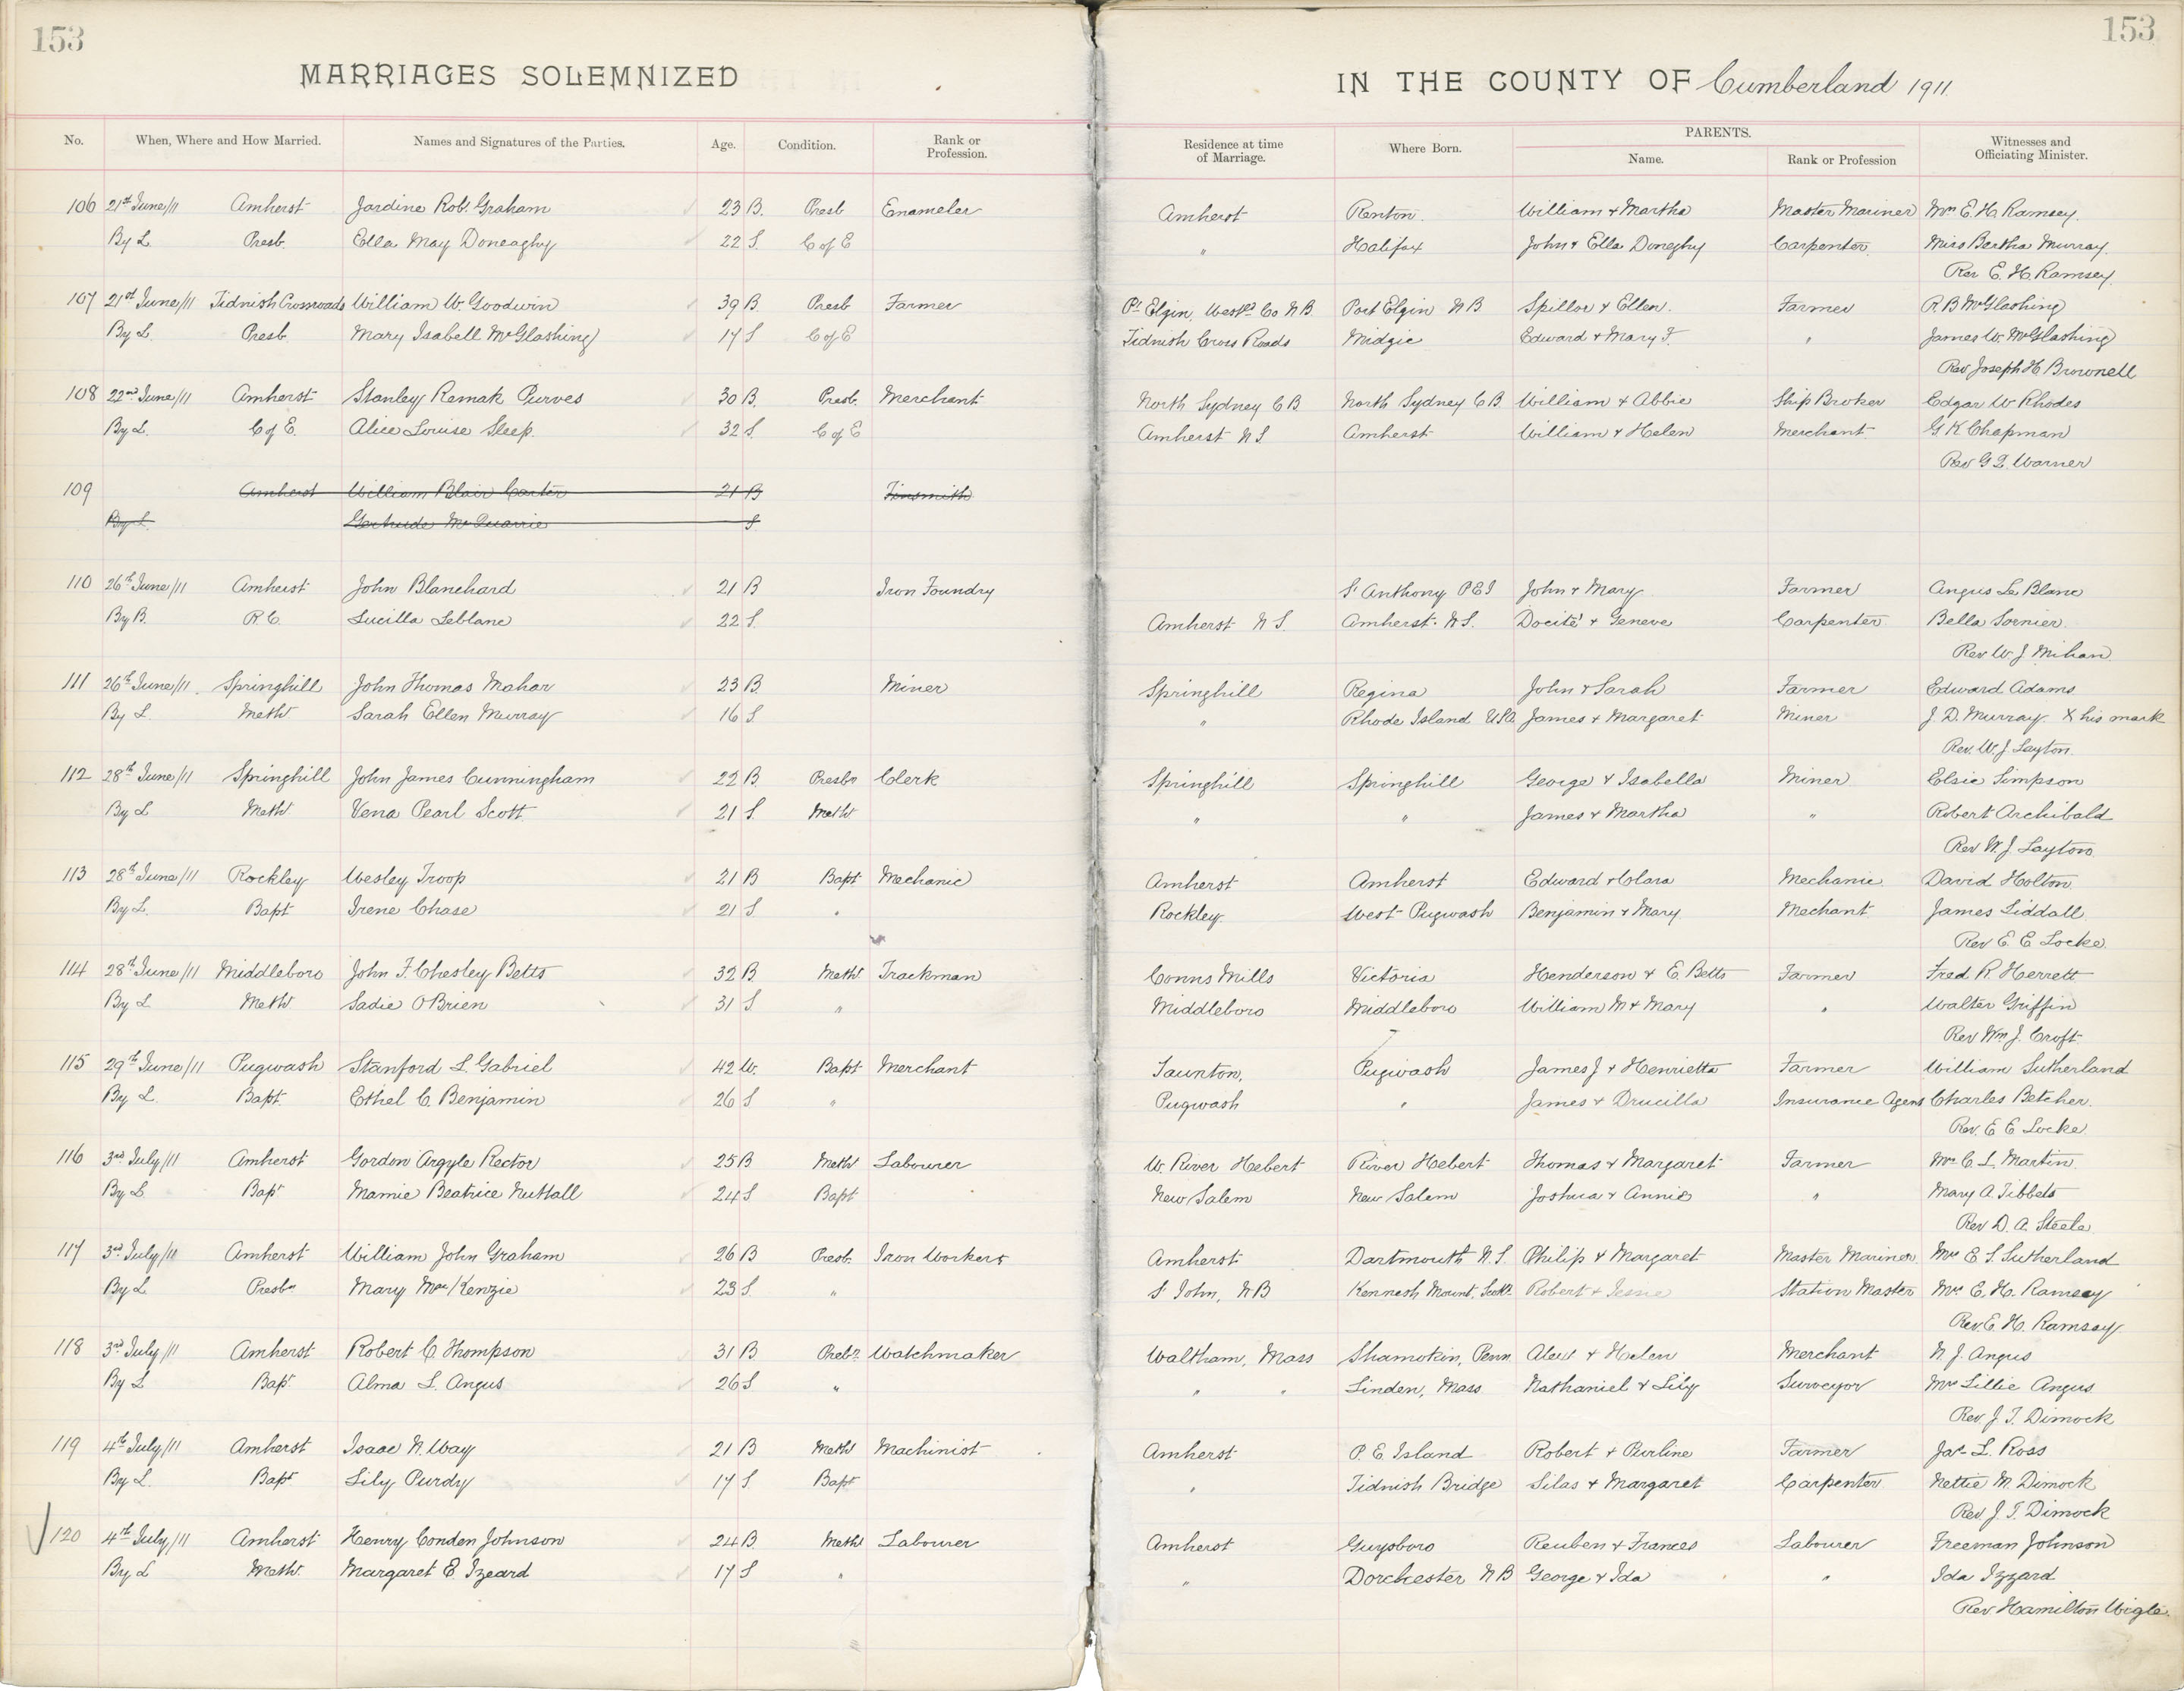 153
153
MARRIAGES SOLEMNIZED IN THE COUNTY OF Cumberland 1911.
No. When, Where and How Married. Names and Signatures of the Parties. Age. Condition. Rank or Profession. Residence at time of Marriage. Where Born. PARENTS. Name. Rank or Profession Witnesses and Officiating Minister.
106 21st June/11 Amherst Jardine Robt. Graham 23 B. Presb Enameler Amherst Renton. William & Martha Master Mariner Mrs E. H. Ramsey.
By L. Presb. Ella May Doneaghy 22 S. C of E " Halifax John & Ella Doneghy Carpenter Miss Bertha Murray.
Rev E. H. Ramsey.
107 21st June/11 Tidnish Crossroads William W. Goodwin 39 B. Presb Farmer Pt Elgin, Westld Co N.B. Port Elgin N B Spillor & Ellen. Farmer R. B McGlashing
By L. Presb. Mary Isabell McGlashing 17 S C of E Tidnish Cross Roads Midgic Edward & Mary F. " James W. McGlashing
Rev Joseph H. Brownell
108 22nd June/11 Amherst Stanley Remak Purves 30 B. Presb. Merchant North Sydney C B. North Sydney C B. William & Abbie Ship Broker Edgar W Rhodes
By L. C of E. Alice Louise Sleep. 32 S. C of E Amherst N S Amherst William & Helen Merchant G K Chapman
Rev G Q. Warner
109 Amherst William Blair Carter 21 B Tinsmith
By L. Gertrude McQuarrie S
110 26th June/11 Amherst John Blanchard 21 B Iron Foundry St Anthony P E I John & Mary Farmer Angus Le Blanc
By B. R. C. Lucilla Leblanc 22 S. Amherst N S. Amherst. N S. Docité & Geneve Carpenter Bella Sornier.
Rev W. J Mihan
111 26th June/11. Springhill John Thomas Mahar 23 B. Miner Springhill Regina John & Sarah Farmer Edward Adams
By L. Meth Sarah Ellen Murray 16 S " Rhode Island USA. James & Margaret Miner J. D. Murray X his mark
Rev. W. J. Layton.
112 28th June/11 Springhill John James Cunningham 22 B. Presbn Clerk Springhill Springhill George & Isabella Miner Elsie Simpson
By L Meth Vena Pearl Scott. 21 S. Meth " " James & Martha " Robert Archibald
Rev W. J. Layton
113 28th June/11 Rockley Wesley Troop 21 B Bapt Mechanic Amherst Amherst Edward & Clara Mechanic David Holton.
By L. Bapt Irene Chase 21 S. " Rockley. West Pugwash Benjamin & Mary Mechant James Liddall.
Rev E. E Locke.
114 28th June/11 Middleboro John F. Chesley Betts 32 B. Meth Trackman Conns Mills Victoria Henderson & E. Betts Farmer Fred R. Herrett
By L Meth. Sadie OBrien 31 S. " Middleboro Middleboro William M & Mary " Walter Griffin
Rev Wm J. Croft.
115 29th June/11 Pugwash Stanford L. Gabriel 42 W. Bapt Merchant Taunton, Pugwash James J & Henrietta Farmer William Sutherland
By L. Bapt. Ethel C. Benjamin 26 S " Pugwash " James & Drucilla Insurance Agent Charles Betcher.
Rev. E E Locke.
116 3rd July/11 Amherst Gordon Argyle Rector 25 B Meth Labourer W. River Hebert River Hebert Thomas & Margaret Farmer Mrs C. L. Martin.
By L Bapt Mamie Beatrice Nuttall 24 S Bapt New Salem New Salem Joshua & Annie " Mary A. Tibbets
Rev D. A. Steele.
117 3rd July/11 Amherst William John Graham 26 B Presb. Iron Workers Amherst Dartmouth N. S. Philip & Margaret Master Mariner Mrs E. S. Sutherland
By L Presbn Mary MacKenzie 23 S " St John, N B Kennesh Mount, Scotl. Robert & Jessie Station Master Mrs E. H. Ramsey
Rev. E. H. Ramsay.
118 3rd July/11 Amherst Robert C. Thompson 31 B Presbn Watchmaker Waltham, Mass Shamokin, Penn. Alex & Helen Merchant N. J. Angus
By L Bapt Alma L. Angus 26 S. " " " Linden, Mass. Nathaniel & Lily Surveyor Mrs Lillie Angus
Rev J. T. Dimock
119 4th July/11 Amherst Isaac N. Way 21 B Meth Machinist Amherst P. E. Island Robert & Purline Farmer Jas. L. Ross
By L. Bapt. Lily Purdy 17 S Bapt " Tidnish Bridge Silas & Margaret Carpenter Nettie M. Dimock
Rev. J. T. Dimock
120 4th July/11 Amherst Henry Conden Johnson 24 B. Meth Labourer Amherst Guysboro Reuben & Frances Labourer Freeman Johnson
By L Meth. Margaret E. Izeard 17 S " " Dorchester N B George & Ida " Ida Izzard
Rev Hamilton Wigle.